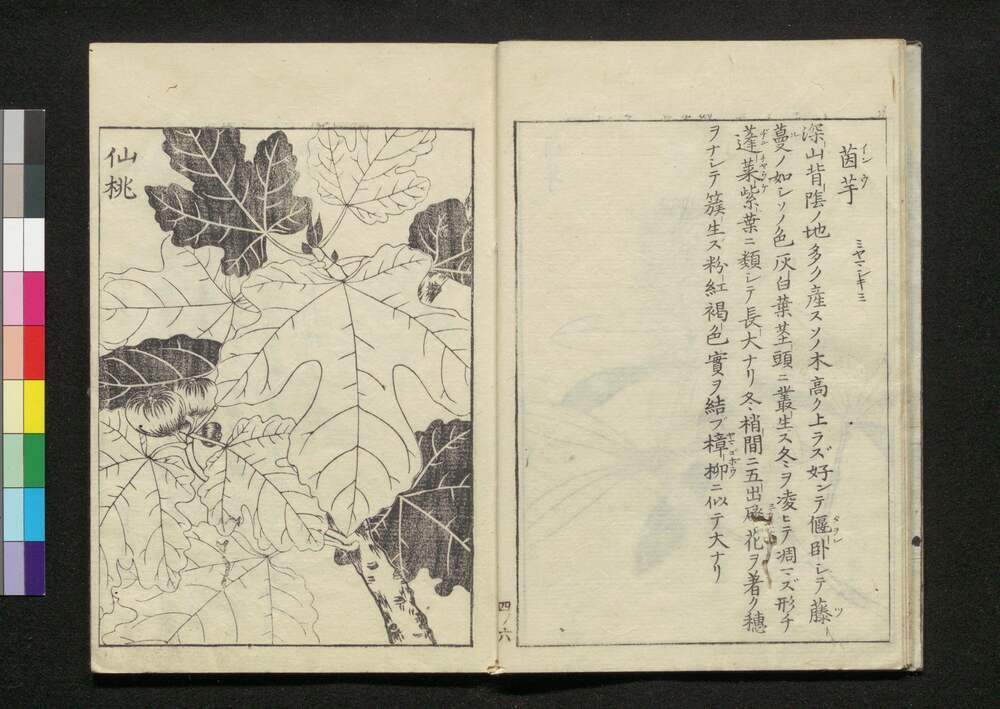 茵芋 ミヤマシキミ
深山背陰ノ地多ク産スソノ木高ク上ラズ好ンテ偃卧シテ藤
蔓ノ如シソノ色灰白葉茎頭ニ叢生ス冬ヲ凌ヒテ凋マズ形チ
蓬莱紫葉ニ類シテ長大ナリ冬梢間ニ五出 花ヲ著ク穗
ヲナシテ簇生ス粉紅褐色實ヲ結ブ樟柳ニ似テ大ナリ
四ノ六
仙桃